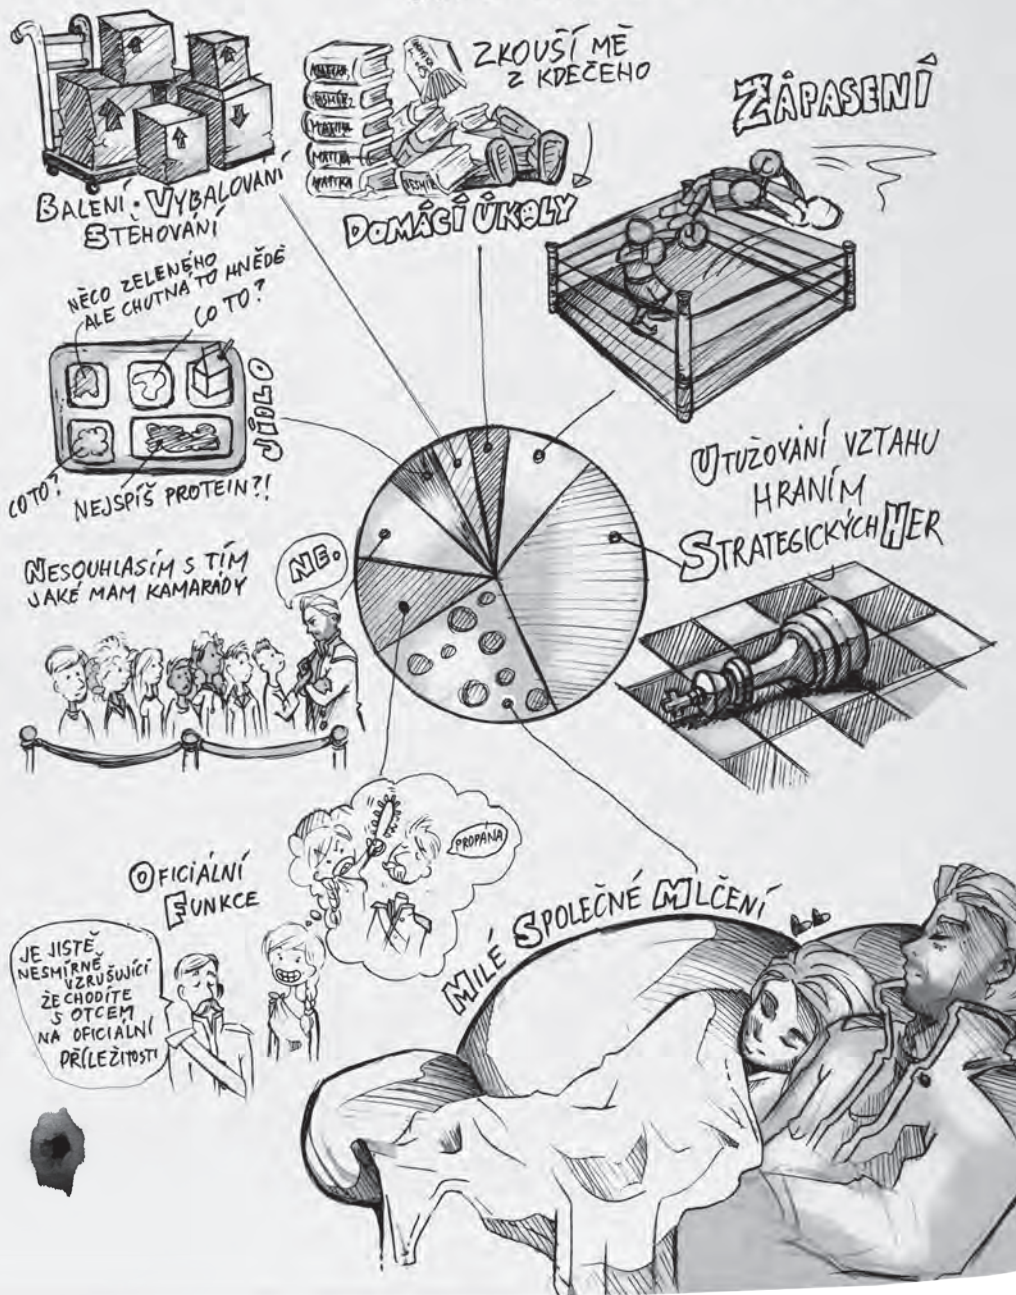 BALENÍ · VYBALOVÁNÍ
STĚHOVÁNÍ
MATIKA
MATIKA
MATIKA
MATIKA
ZKOUŠÍ MĚ
Z KDEČEHO
DOMÁCÍ ÚKOLY
ZÁPASENÍ
NĚCO ZELENÉHO
ALE CHUTNÁ TO HNĚDĚ
CO TO?
JÍDLO
CO TO?
NEJSPÍŠ PROTEIN?!
UTUŽOVÁNÍ VZTAHU
HRANÍM
STRATEGICKÝCH HER
NESOUHLASÍM S TÍM
JAKÉ MAM KAMARÁDY
NE.
OFICIÁLNÍ
FUNKCE
PROPÁNA
JE JISTĚ
NESMÍRNĚ
VZRUŠUJÍCÍ
ŽE CHODÍTE
S OTCEM
NA OFICIÁLNÍ
PŘÍLEŽITOSTI
MILÉ SPOLEČNÉ MLČENÍ